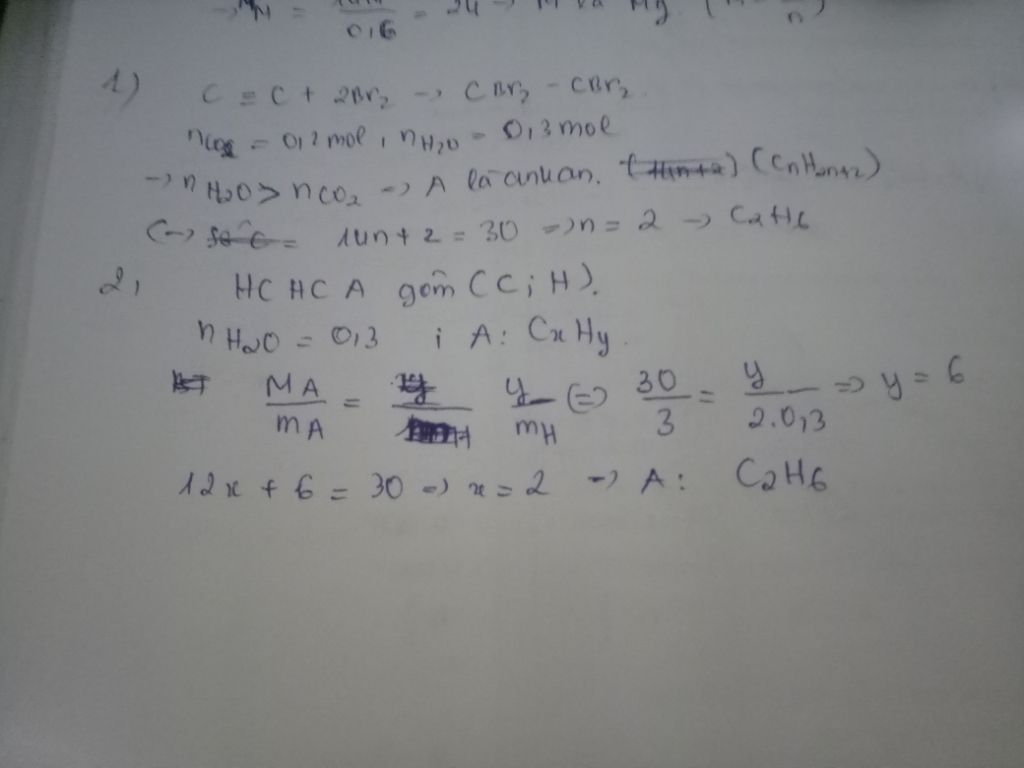 → M = / 0,6 = 24 → M là Mg. (
1) C ≡ C + 2Br₂ → CBr₂ - CBr₂
nCO₂ = 0,2 mol, nH₂O = 0,3 mol
→ nH₂O > nCO₂ → A là ankan. (CnH₂n+2)
(→ 14n + 2 = 30 => n = 2 → C₂H₆
2, HCHC A gồm (C; H).
nH₂O = 0,3 ; A: CxHy.
MA/mA = y/mH (=) 30/3 = y/2.0,3 => y = 6
12x + 6 = 30 → x = 2 → A: C₂H₆